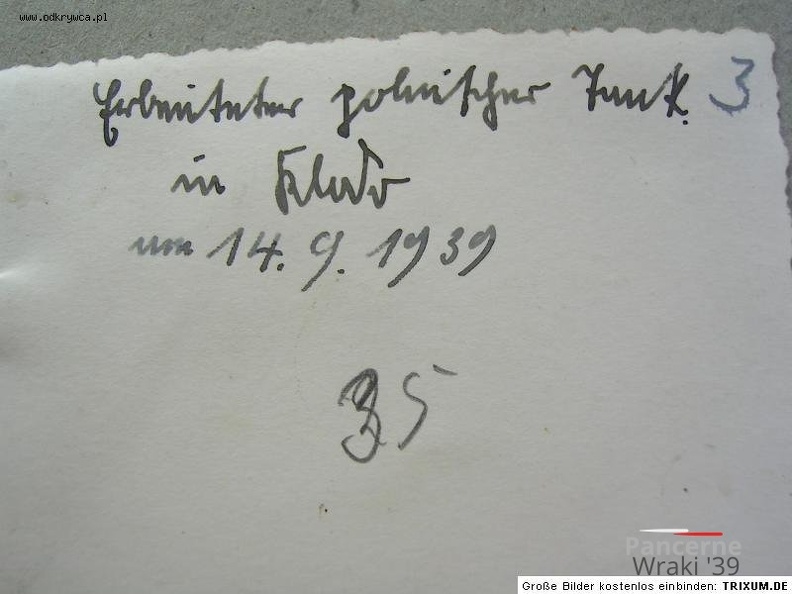 www.odkrywca.pl
Erbeuteter polnischer Tank. 3
in
am 14.9.1939
35
Pancerne
Wraki '39
Große Bilder kostenlos einbinden: TRIXUM.DE